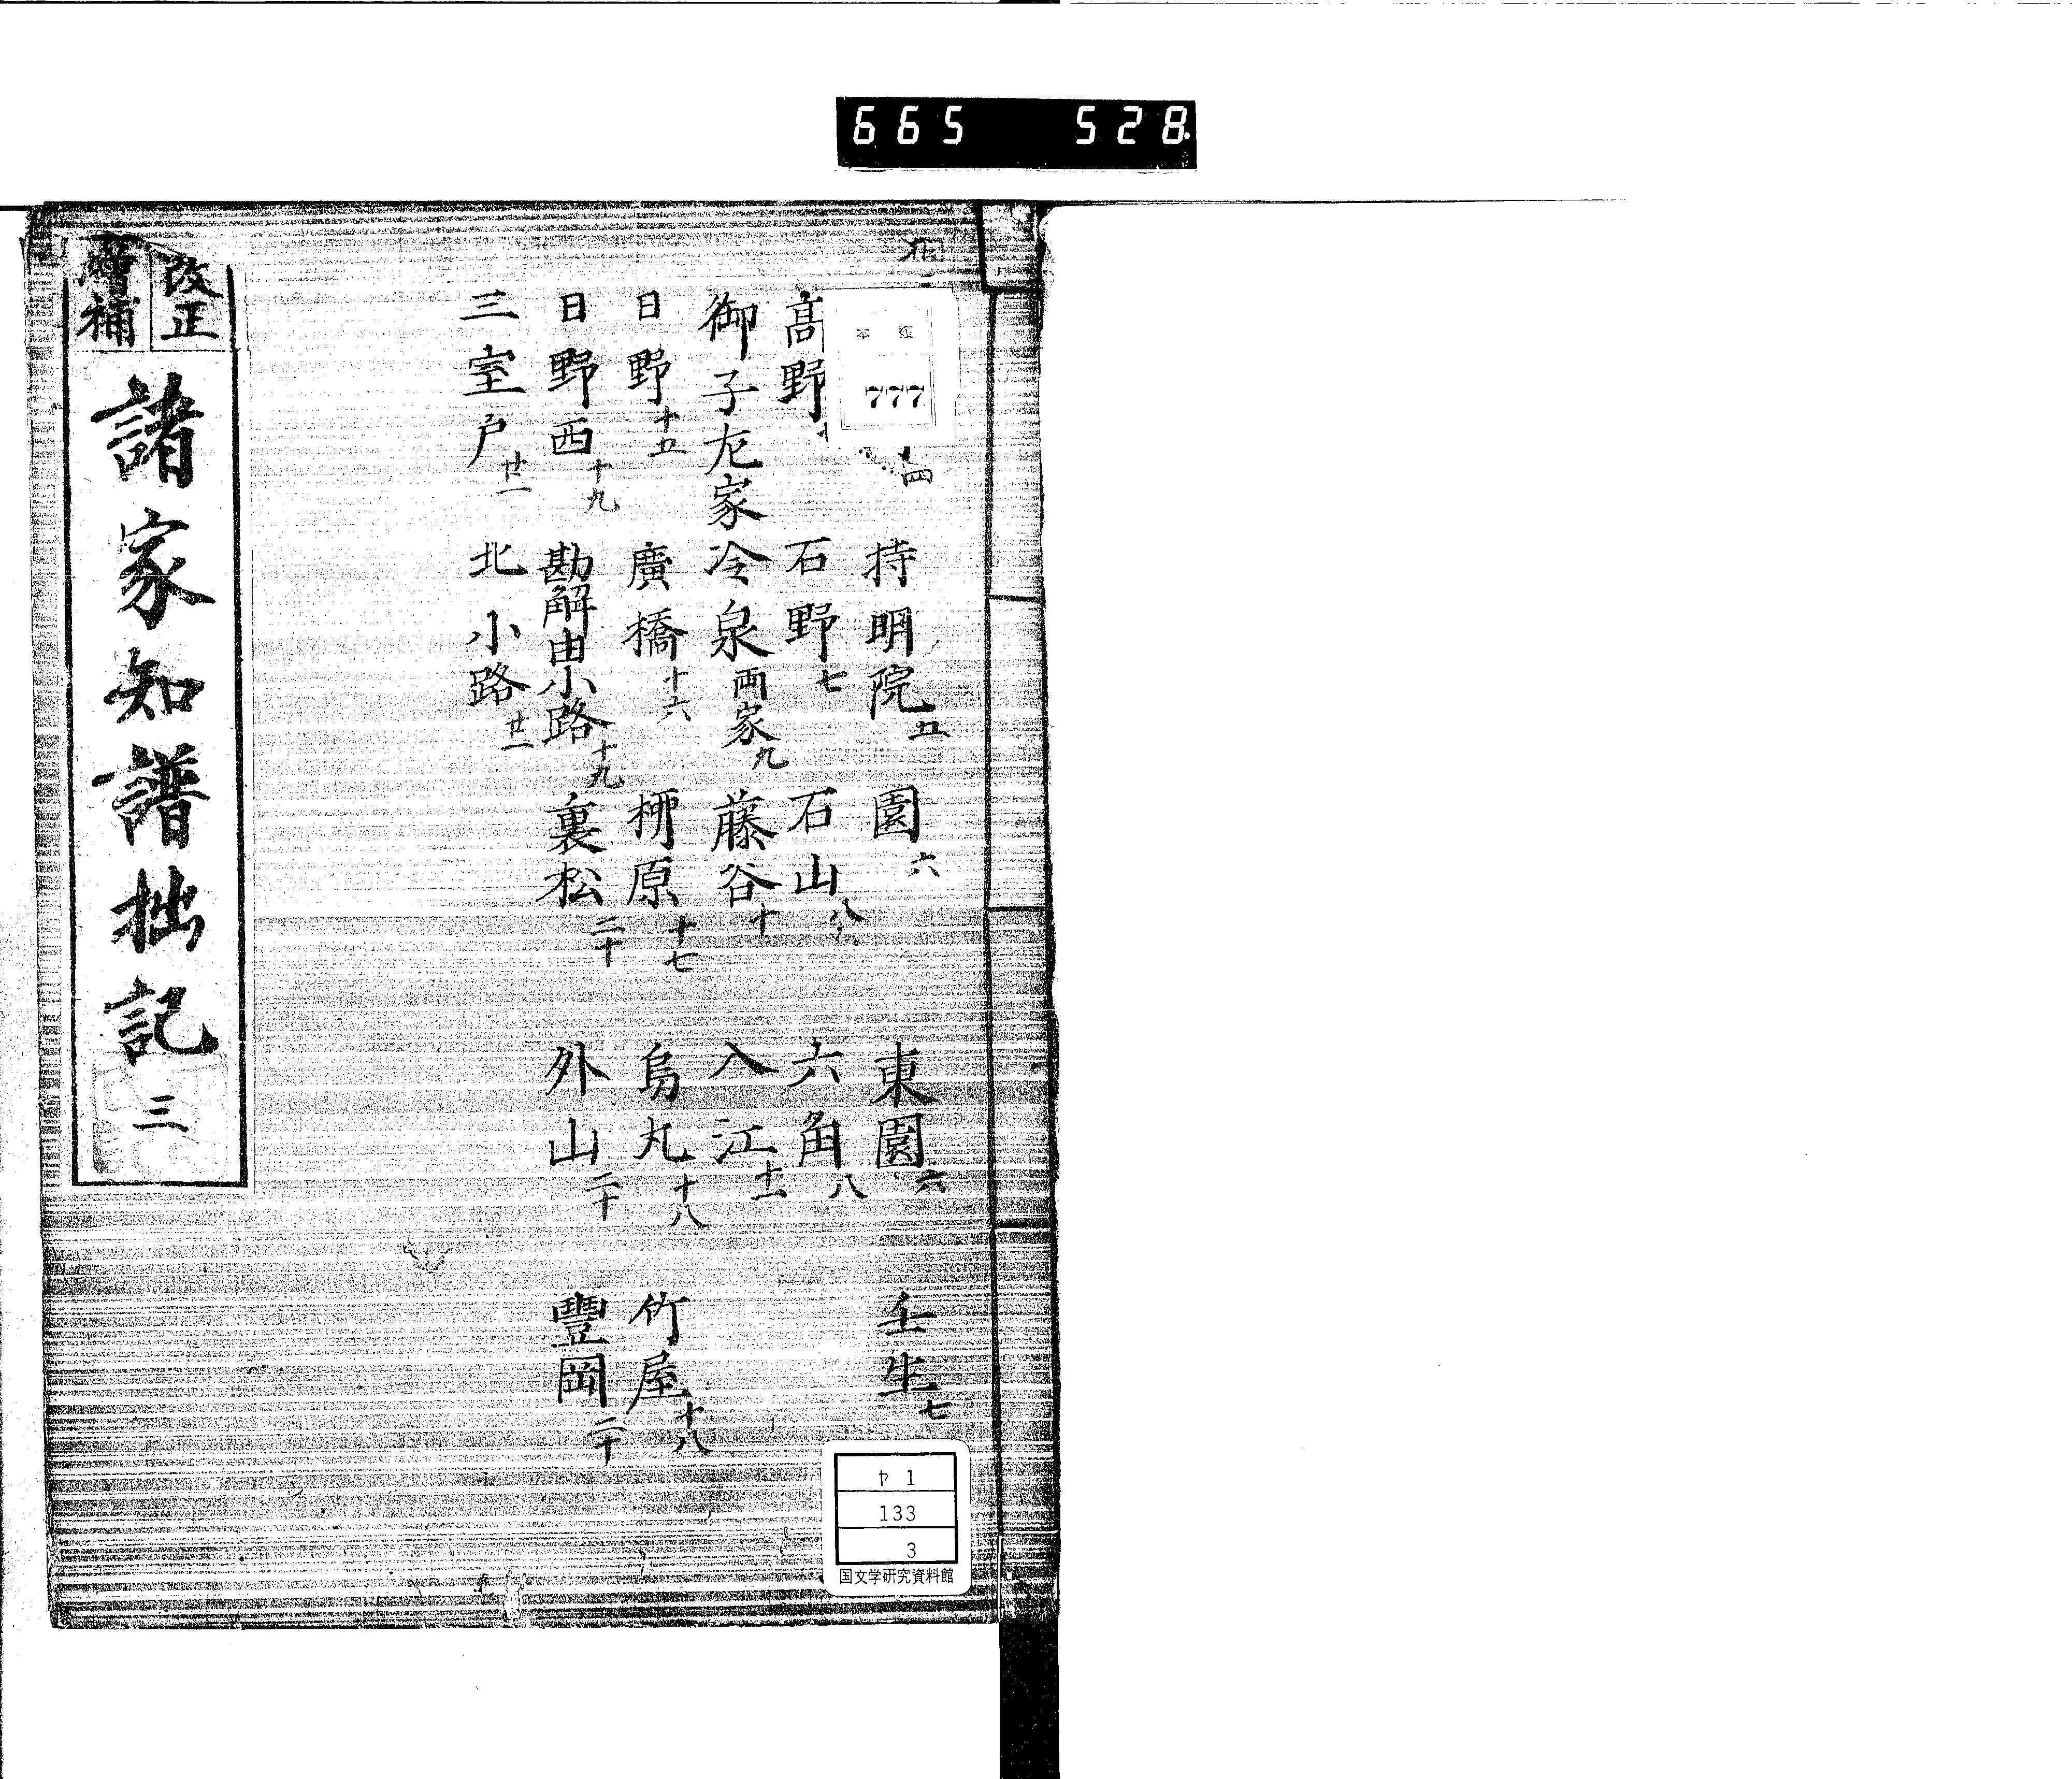 665 528.
四 持明院五 園六 東園六 壬生七
髙野 石野七 石山八 六角八
御子左家 冷泉両家九 藤谷十 入江十一
日野十五 廣橋十六 栁原十七 烏丸十八 竹屋十八
日野西十九 勘解由小路十九 裏松二十 外山二十 豐岡二十
三室戸廿一 北小路廿一
改正
增補
諸家知譜拙記 三
777
ヤ 1
133
3
国文学研究資料館